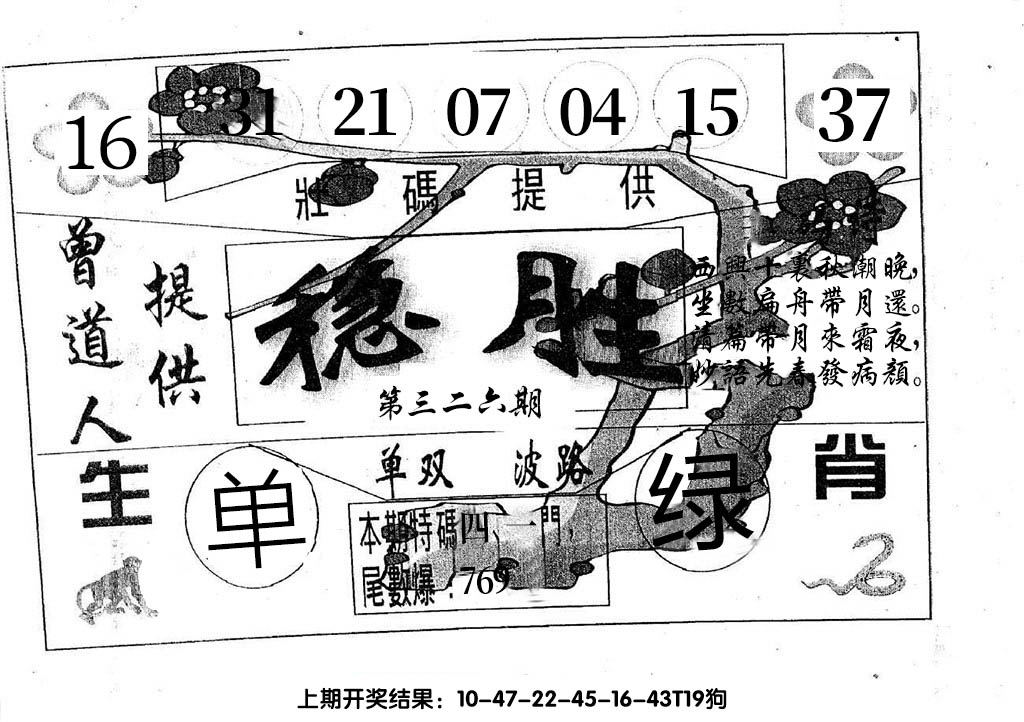 16 31 21 07 04 15 37
壯碼提供
曾道人
提供
稳胜
第三二六期
西興十裏秋潮晚，
坐數扁舟帶月還。
清篇帶月來霜夜，
妙語先春發病顏。
生肖
单双 波路
单
绿
本期特碼四、一門，
尾數爆：769
上期开奖结果：10-47-22-45-16-43T19狗